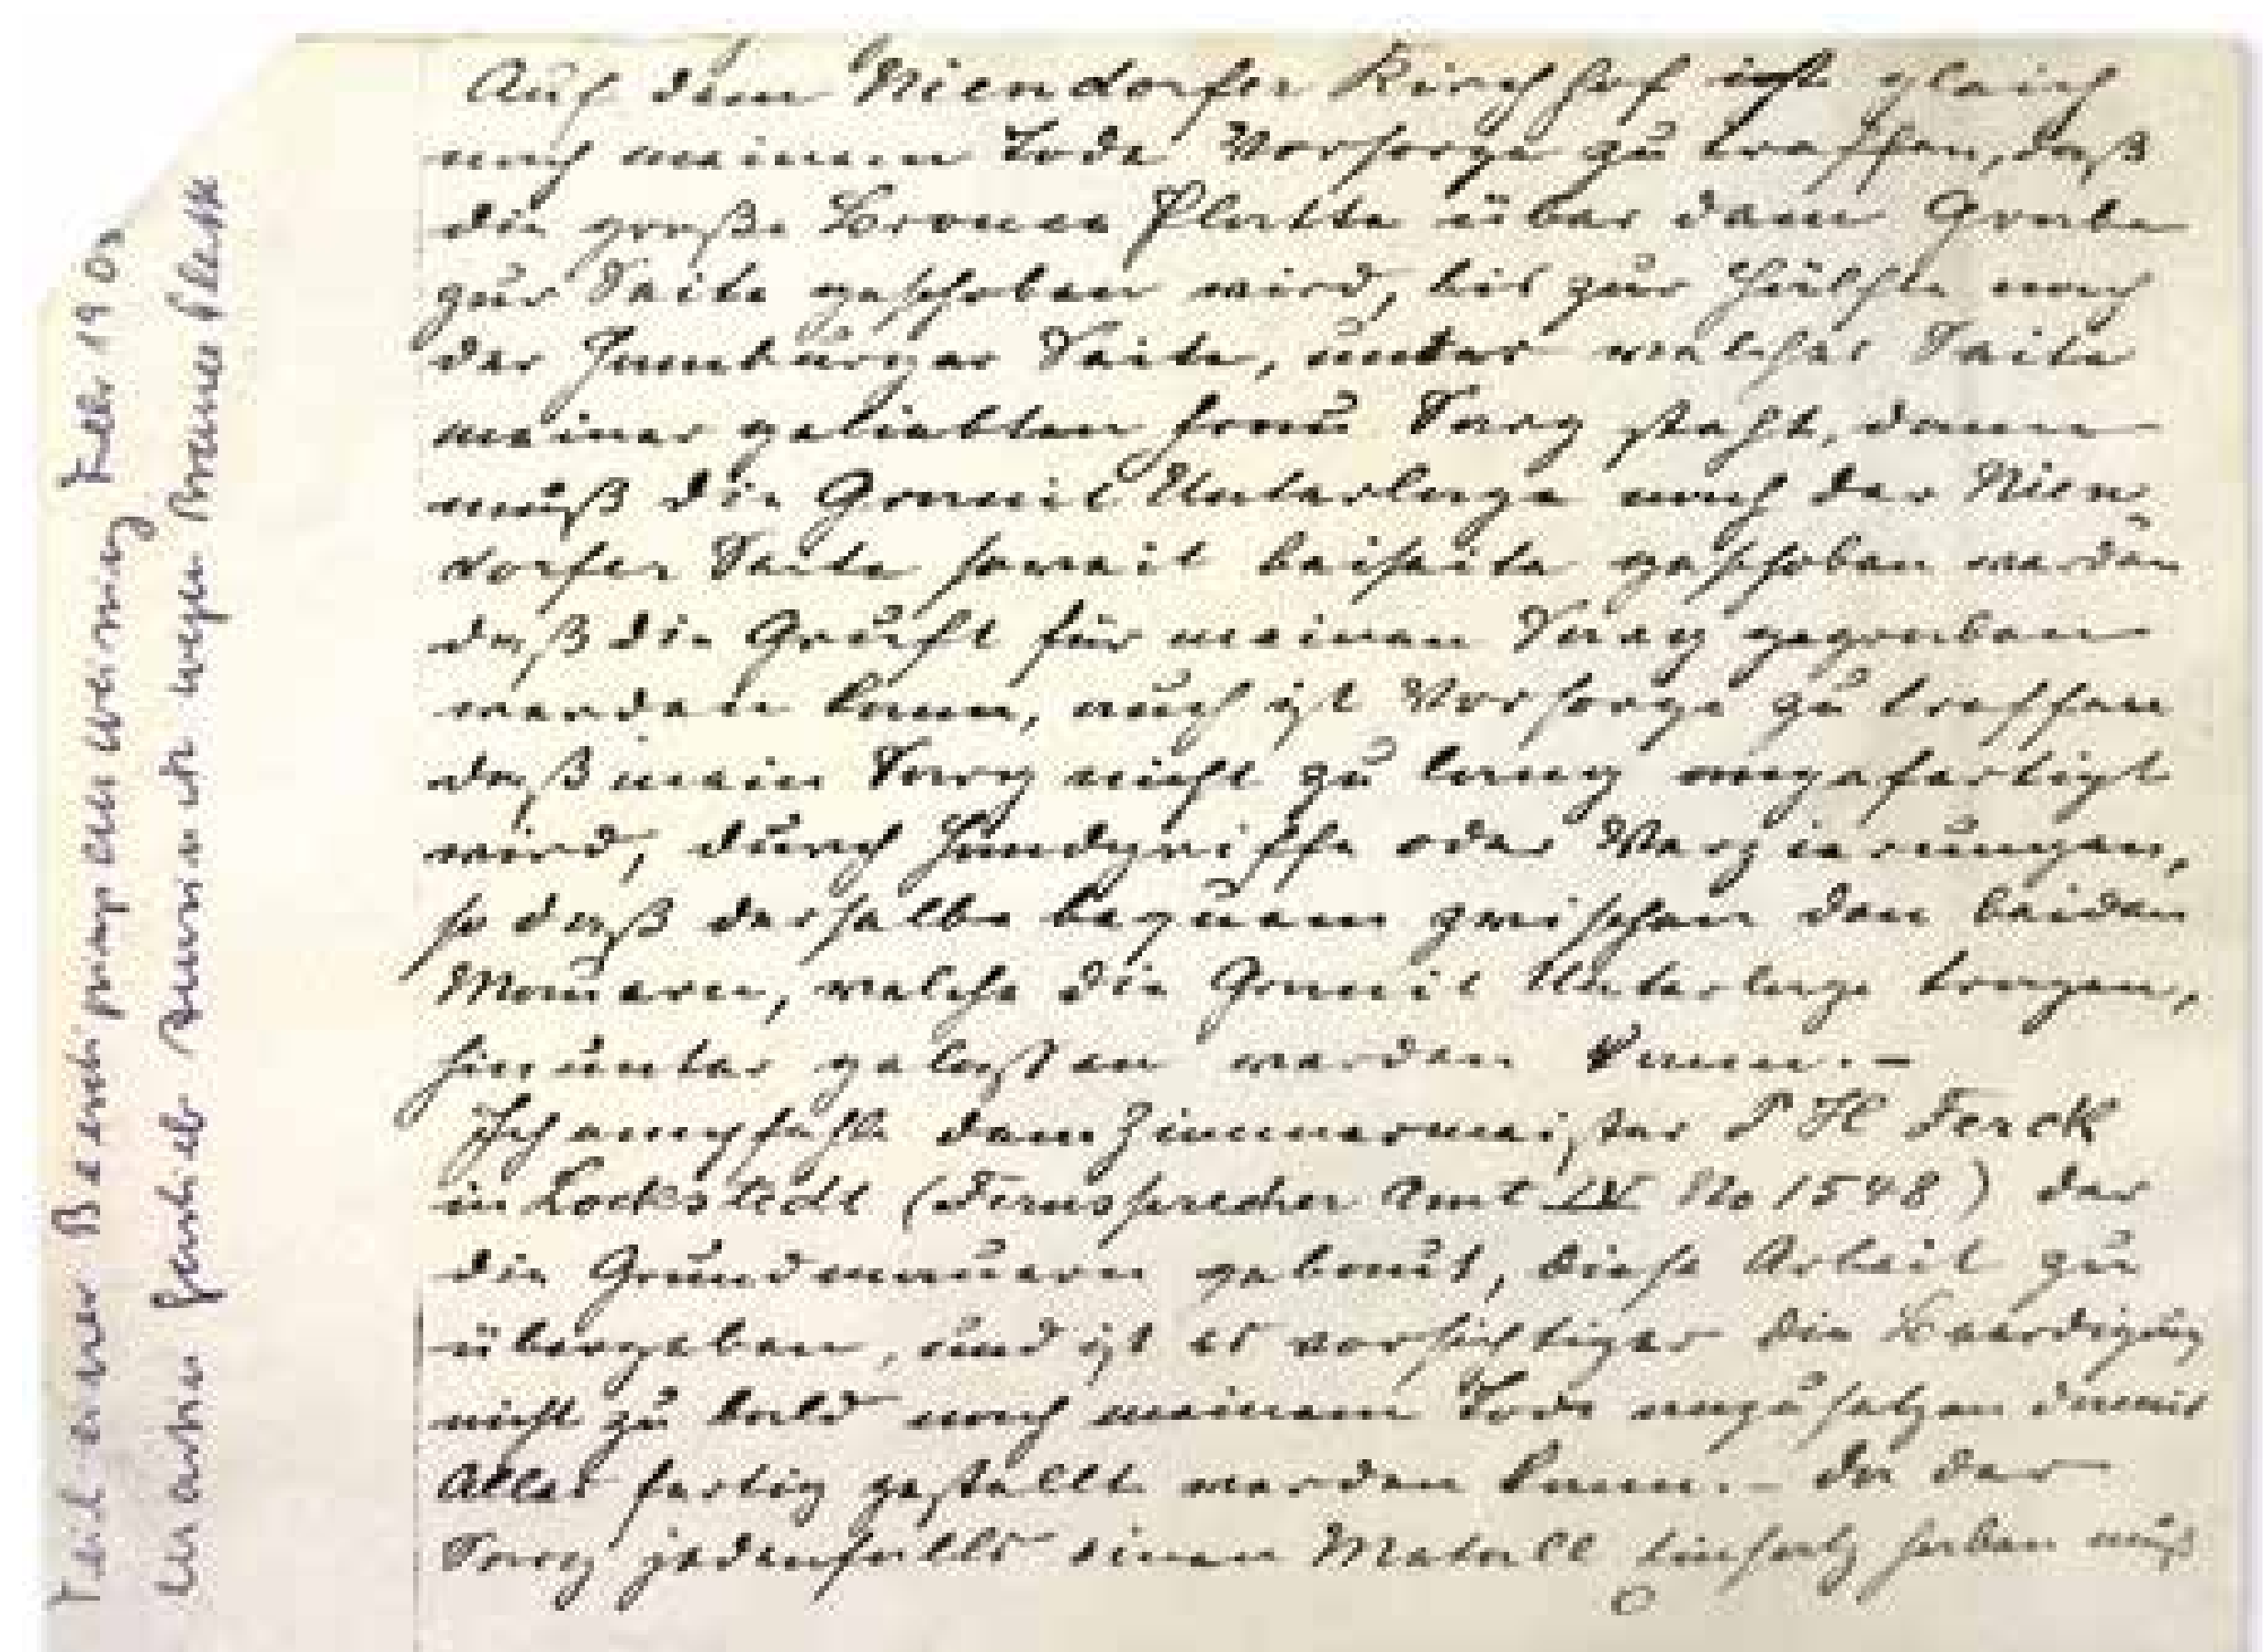 Auf dem Niendorfer Kirchhof ist gleich
nach meinem Tode Vorsorge zu treffen, daß
die große Bronce Platte über dem Grabe
zur Seite geschoben wird, bis zur Hälfte nach
der Hamburger Seite, unter welcher Seite
meiner geliebten Frau Sarg steht, dann
muß die Granit Unterlage nach der Nien-
dorfer Seite soweit beiseite geschoben werden
daß die Gruft für meinen Sarg gegraben
werden kann, auch ist Vorsorge zu treffen
daß mein Sarg nicht zu lang angefertigt
wird, durch Handgriffe oder Verzierungen,
so daß derselbe bequem zwischen den beiden
Mauern, welche die Granit Unterlage tragen,
hinunter gelassen werden kann.-
Ich empfehle dem Zimmermeister P H Ferck
in Lockstedt (Fernsprecher Amt IV No 1548) der
die Grundmauern gebaut, diese Arbeit zu
übergeben, und ist es vorsichtiger die Beerdigung
nicht zu bald nach meinem Tode anzusetzen damit
Alles fertig gestellt werden kann.- da der
Sarg jedenfalls einen Metall Einsatz haben muß
Teil einer Beerdigungsanweisung
wegen Bronce Platte